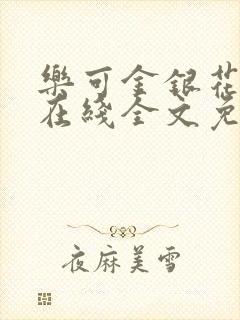 樂可金銀花
在綫全文免
夜麻美雪